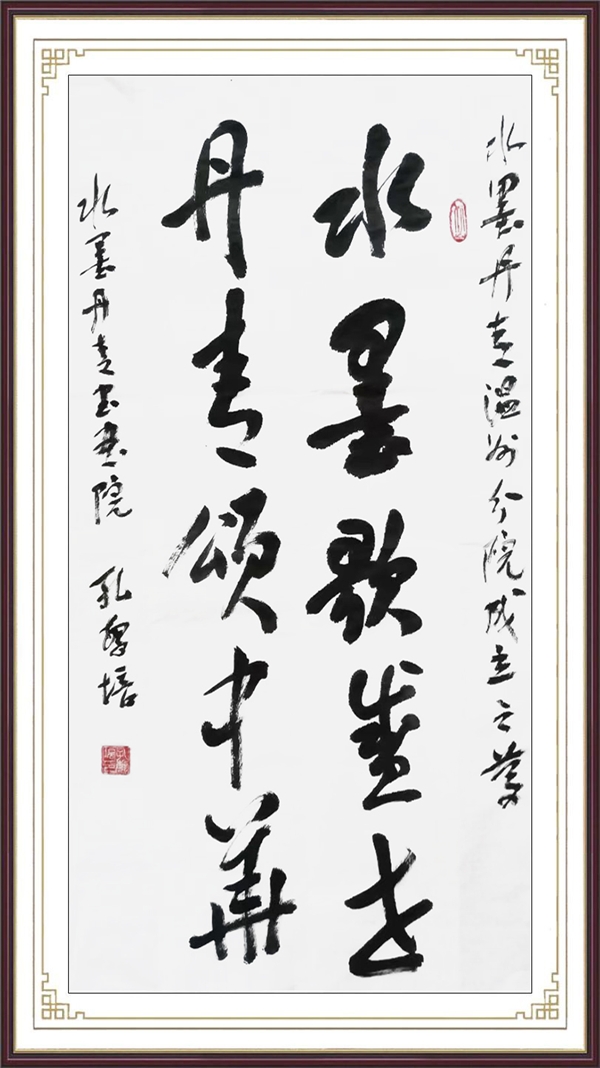 水墨丹青温州分院成立之慶
水墨歌盛世
丹青颂中華
水墨丹青书画院 孔